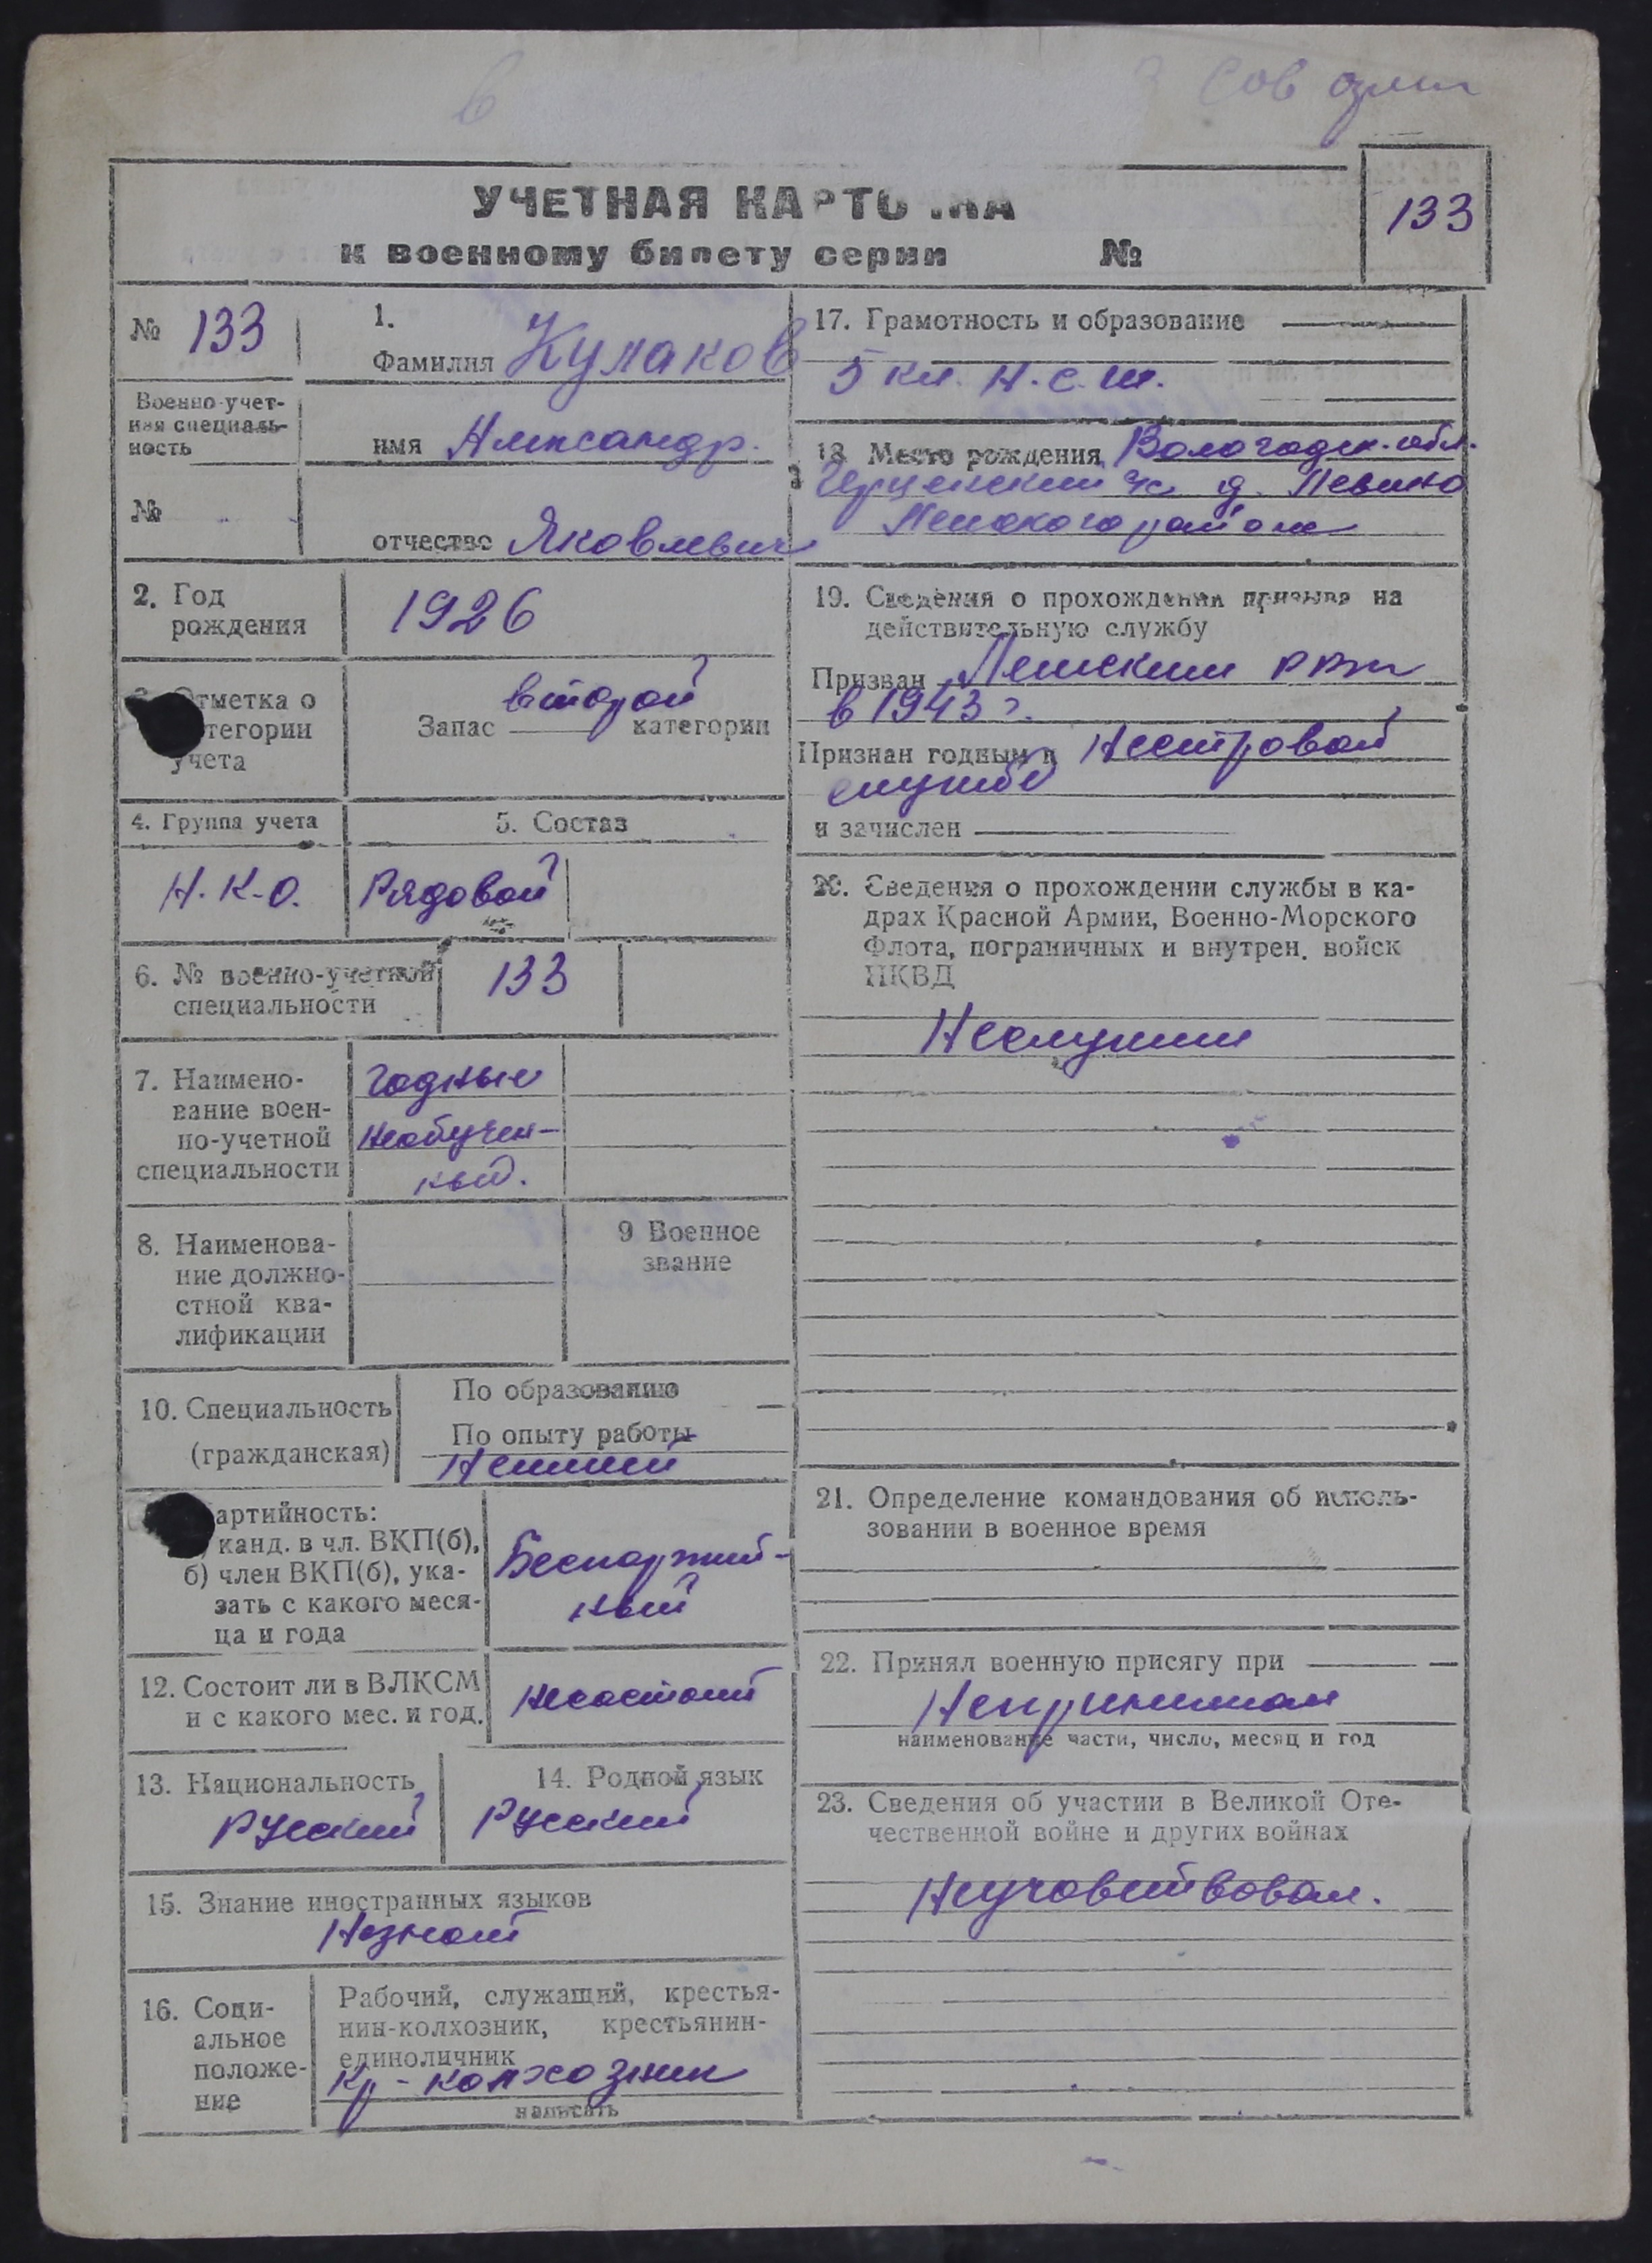 Сов
УЧЕТНАЯ КАРТО КА
к военному билету серии №
133
№ 133
1.
Фамилия Кулаков
Военно-учет-
ная специаль-
ность
имя Александр.
№
отчество Яковлевич
2. Год
рождения
1926
Отметка о
тегории
учета
Запас второй категории
4. Группа учета
5. Состав
Н.К.О.
Рядовой
6. № военно-учетной
специальности
133
7. Наимено-
вание воен-
но-учетной
специальности
годные
необучен-
ный.
8. Наименова-
ние должно-
стной ква-
лификации
9 Военное
звание
10. Специальность
(гражданская)
По образованию
По опыту работы
артийность:
канд. в чл. ВКП(б),
б) член ВКП(б), ука-
зать с какого меся-
ца и года
Беспартий-
ный
12. Состоит ли в ВЛКСМ
и с какого мес. и год.
Несостоит
13. Национальность
Русский
14. Родной язык
Русский
15. Знание иностранных языков
Незнает
16. Соци-
альное
положе-
ние
Рабочий, служащий, крестья-
нин-колхозник, крестьянин-
единоличник
Кр-колхозник
написать
17. Грамотность и образование
5 кл. Н.С.Ш.
18. Место рождения Вологодск. обл.
с д. Левино
района
19. Сведения о прохождении призыва на
действительную службу
Призван РВК
в 1943 г.
Признан годным к Нестровой
службе
и зачислен
20. Сведения о прохождении службы в ка-
драх Красной Армии, Военно-Морского
Флота, пограничных и внутрен. войск
НКВД
Неслужил
21. Определение командования об исполь-
зовании в военное время
22. Принял военную присягу при
Непринимал
наименование части, число, месяц и год
23. Сведения об участии в Великой Оте-
чественной войне и других войнах
Неучавствовал.